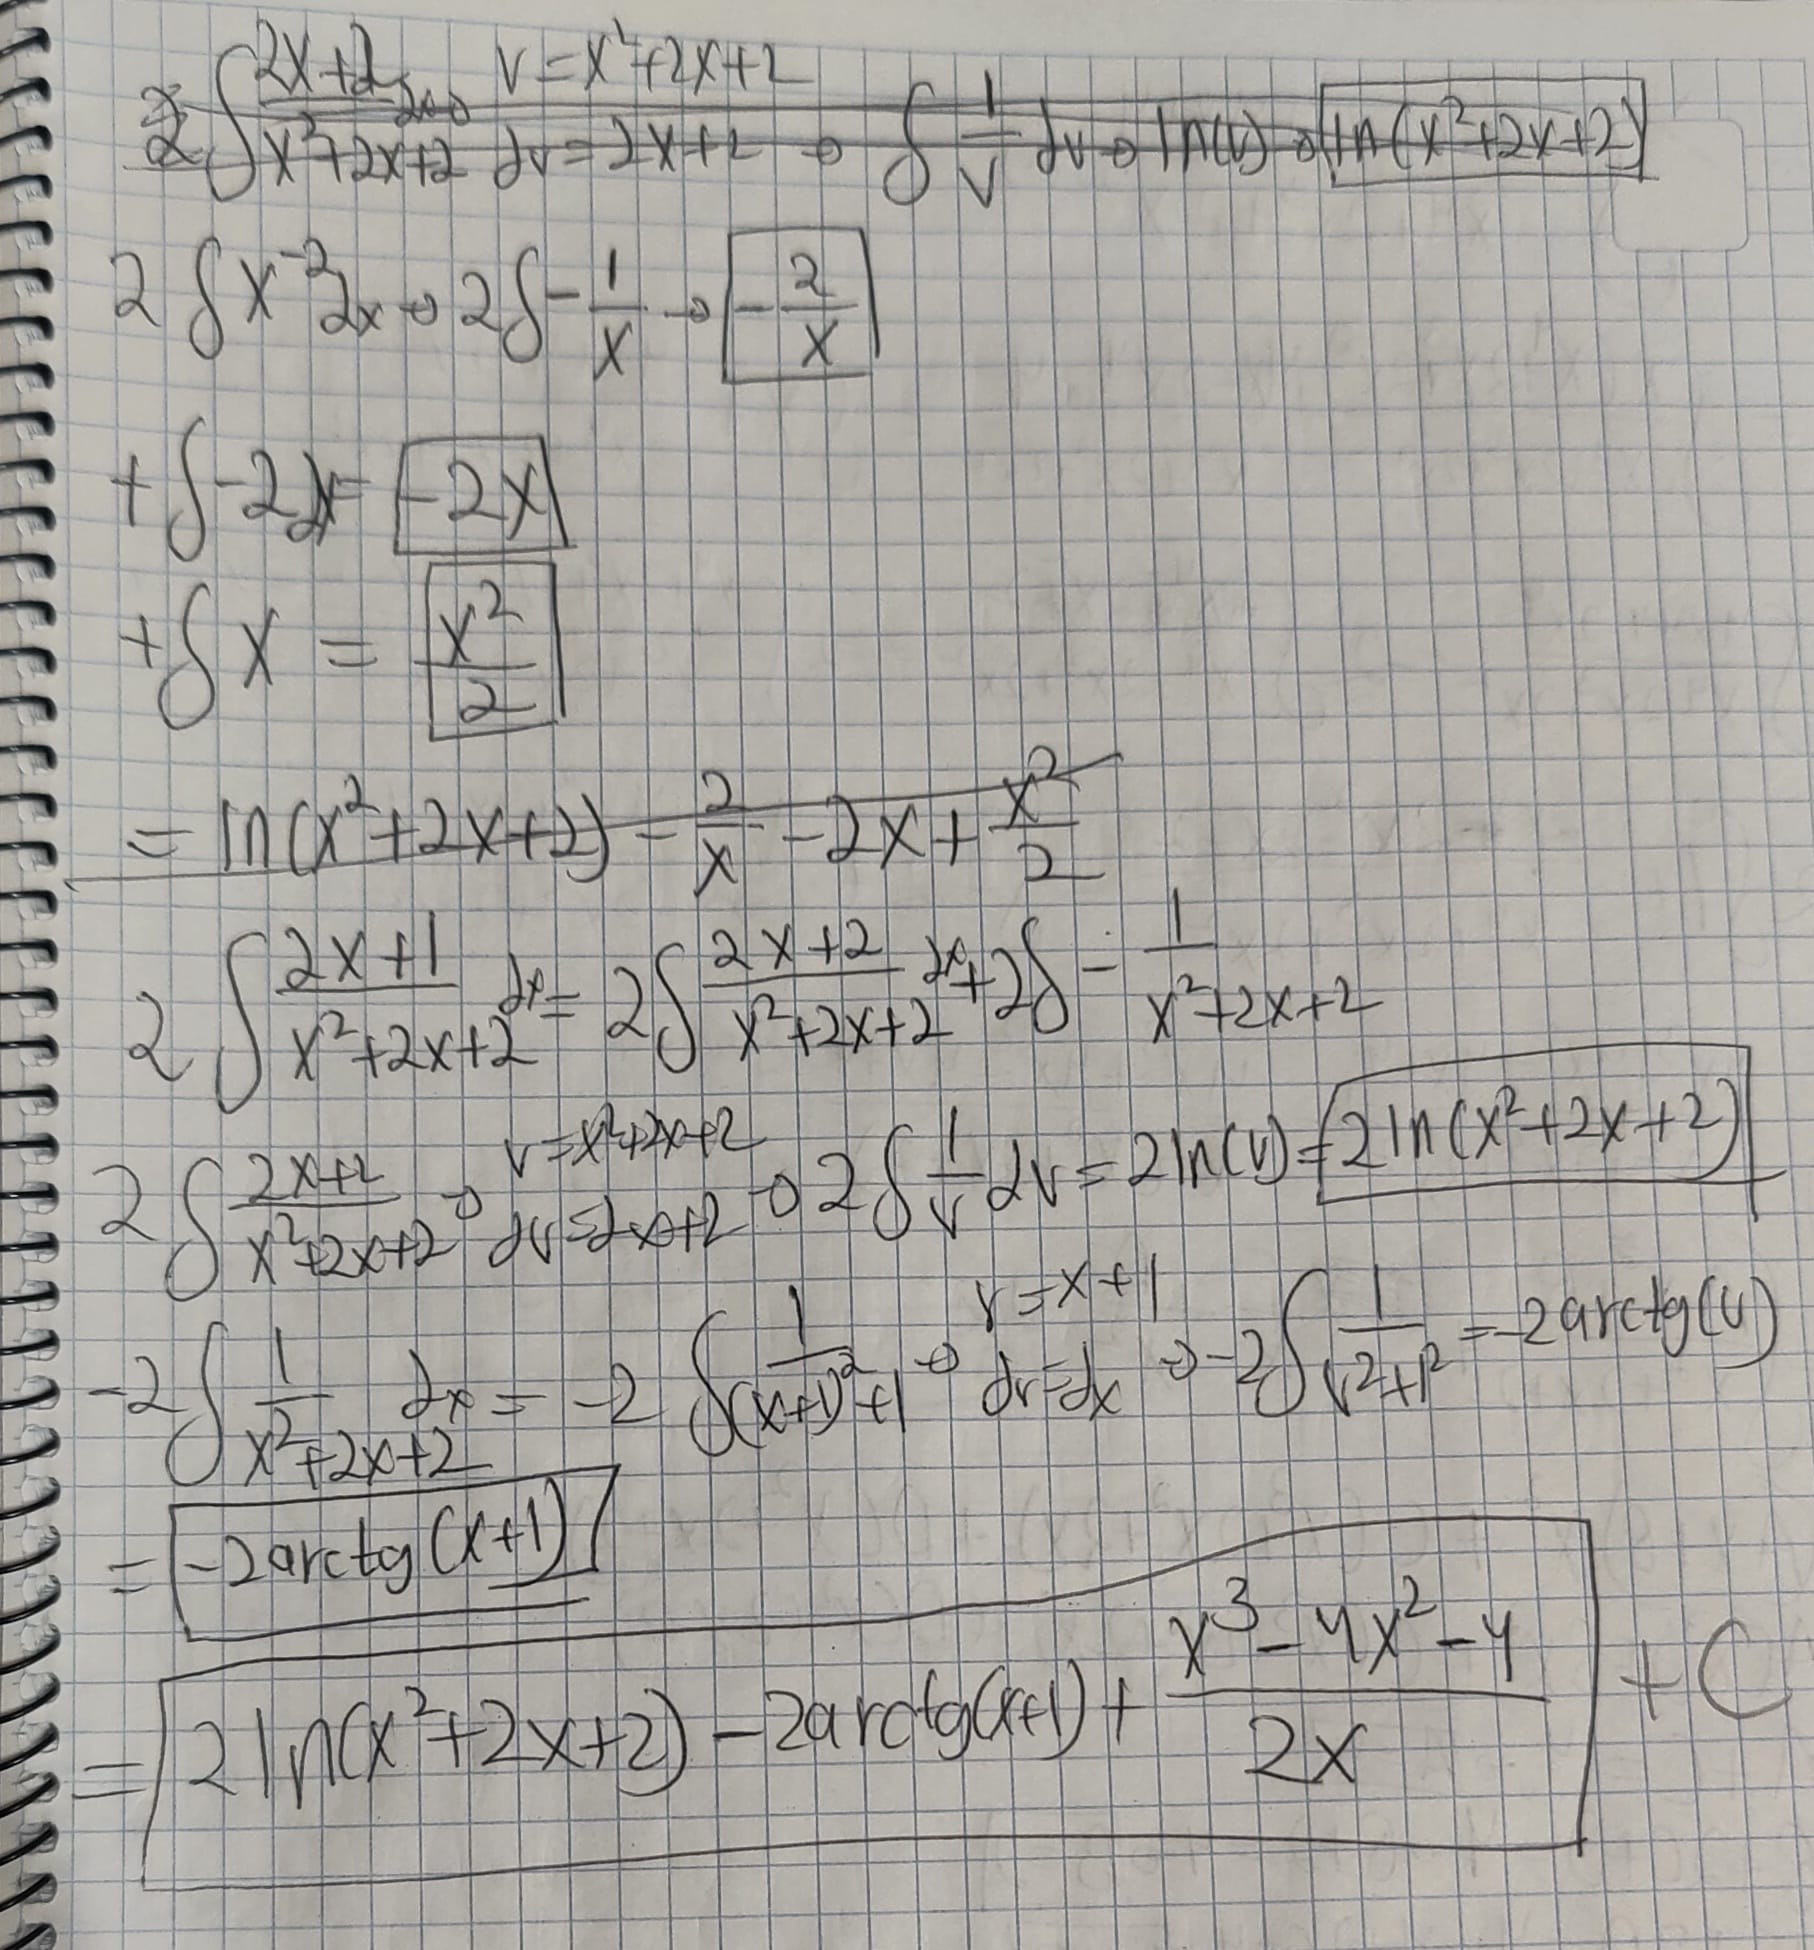 2 ∫ 2x+2 / x²+2x+2 dx → v = x²+2x+2 dv = 2x+2 → ∫ 1/v dv → ln(v) → ln(x²+2x+2)
2 ∫ x⁻² dx → 2 ∫ -1/x → -2/x
+ ∫ -2 dx = -2x
+ ∫ x = x²/2
= ln(x²+2x+2) - 2/x - 2x + x²/2
2 ∫ 2x+1 / x²+2x+2 dx = 2 ∫ 2x+2 / x²+2x+2 dx + 2 ∫ - 1 / x²+2x+2
2 ∫ 2x+2 / x²+2x+2 → v = x²+2x+2 dv = 2x+2 → 2 ∫ 1/v dv = 2 ln(v) = 2 ln(x²+2x+2)
-2 ∫ 1 / x²+2x+2 dx = -2 ∫ 1 / (x+1)²+1 → v = x+1 dv = dx → -2 ∫ 1 / v²+1² = -2 arctg(v)
= -2 arctg(x+1)
= 2 ln(x²+2x+2) - 2 arctg(x+1) + x³-4x²-4 / 2x + C